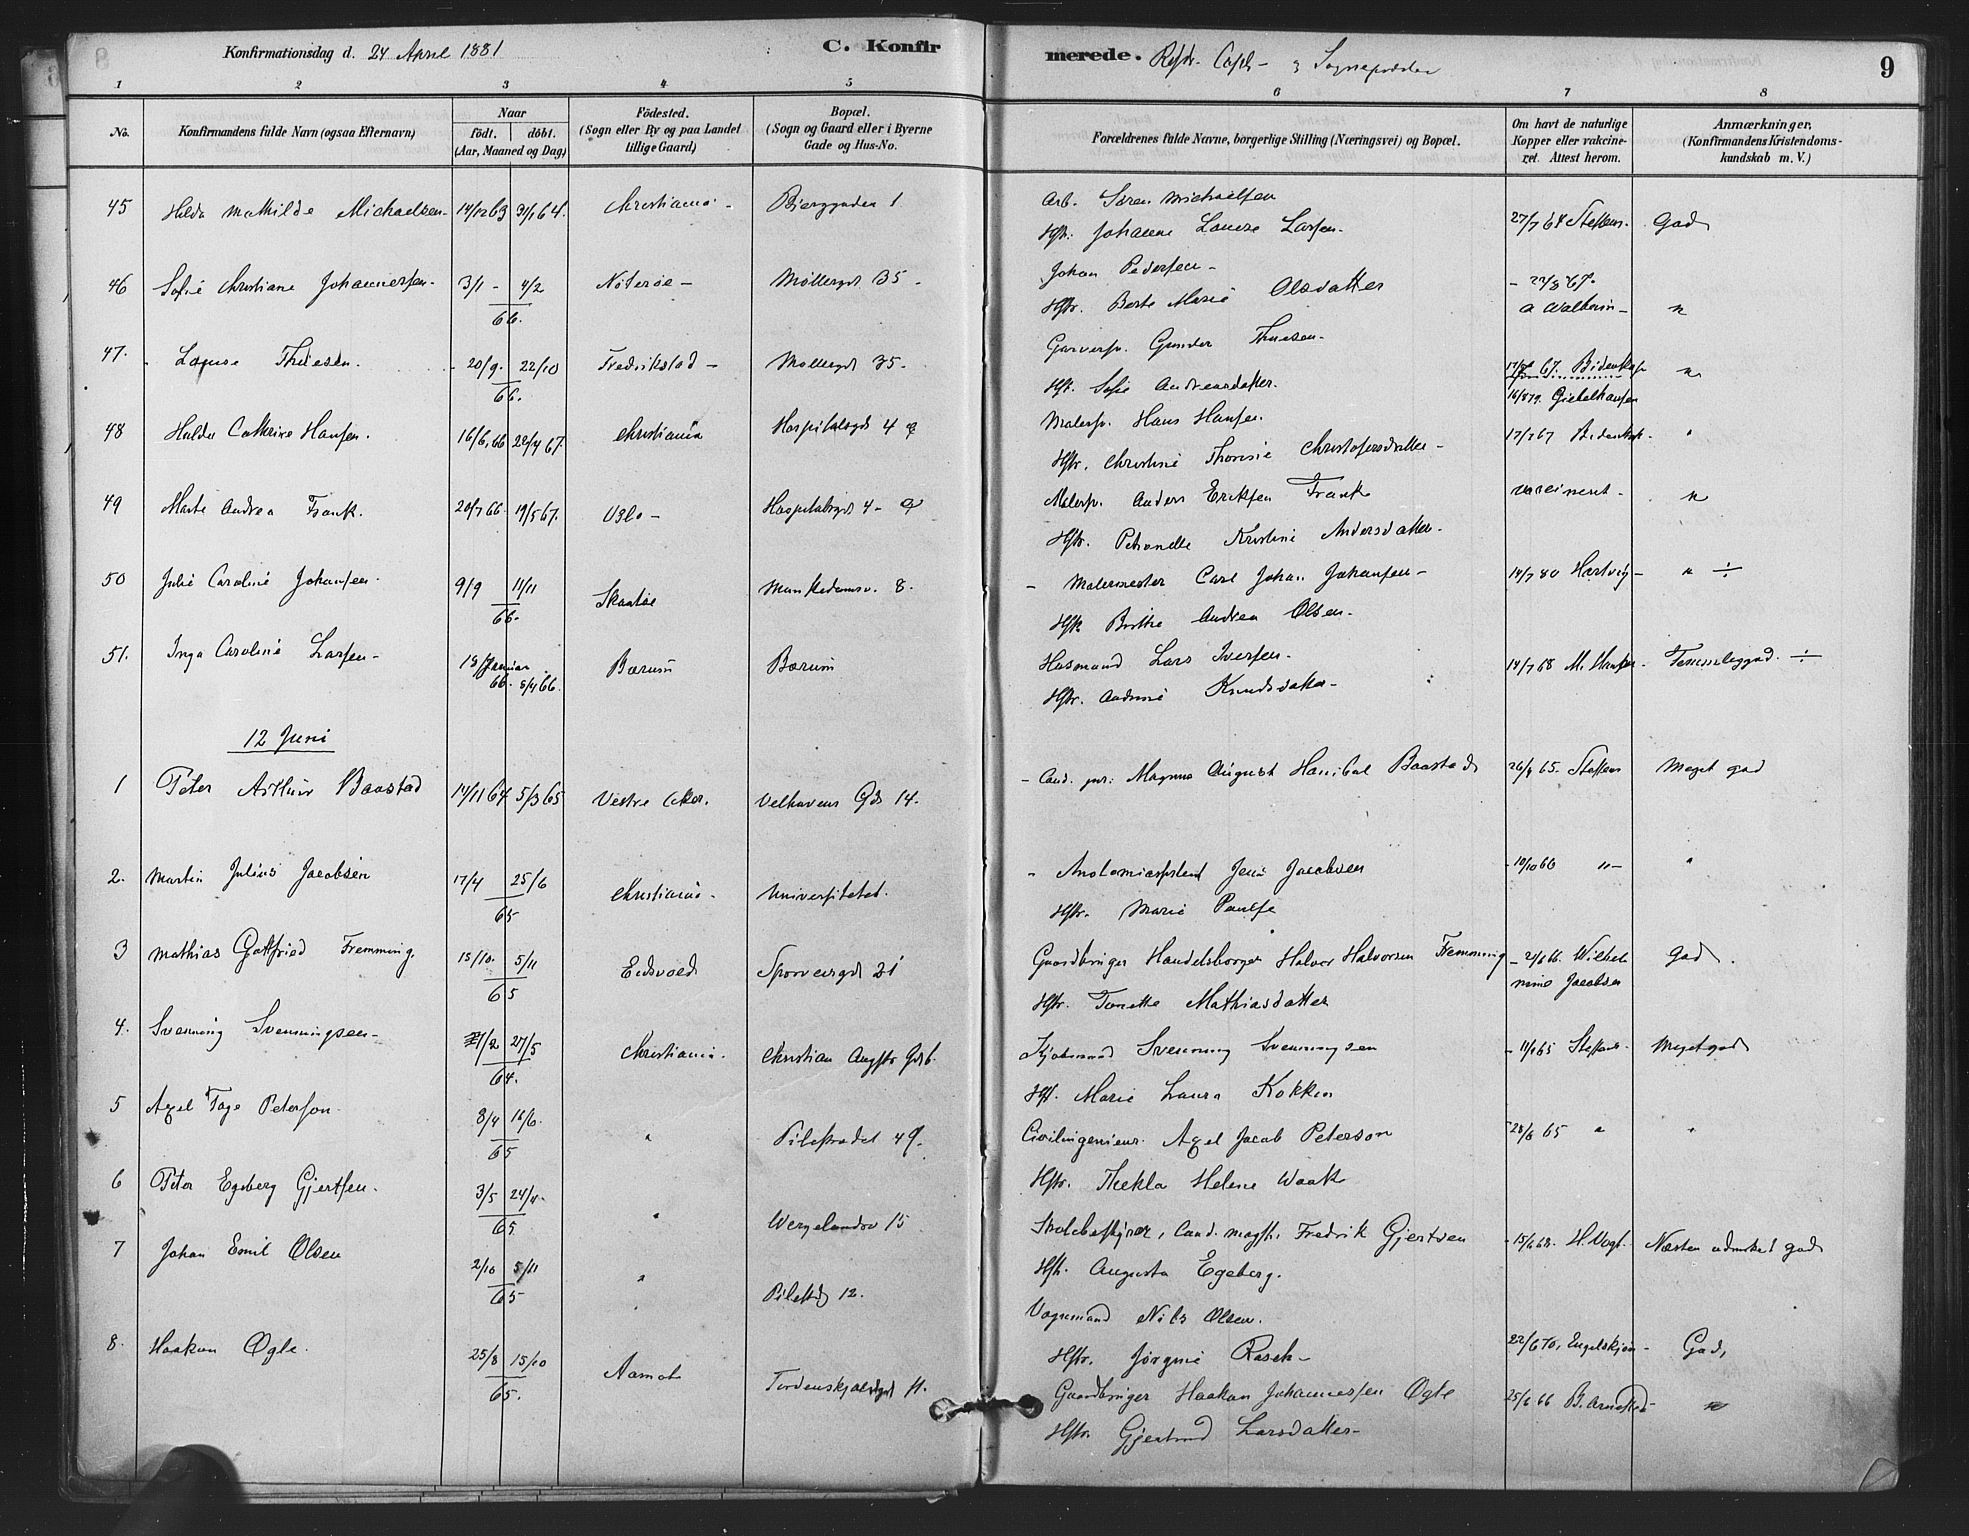 Konfirmationsdag d. 24 April 1881
C. Konfir
merede.
9
1
2
3
4
5
6
7
8
No.
Konfirmandens fulde Navn (ogsaa Efternavn)
Naar
födt. döbt.
(Aar, Maaned og Dag)
Födested.
(Sogn eller By og paa Landet
tillige Gaard)
Bopæl.
(Sogn og Gaard eller i Byerne
Gade og Hus-No.
Forældrenes fulde Navne, borgerlige Stilling (Næringsvei) og Bopæl.
Om havt de naturlige
Kopper eller vakcine-
ret. Attest herom.
Anmærkninger,
(Konfirmandens Kristendoms-
kundskab m. V.)
45 Hilda Mathilde Michaelsen 14/12 63 31/1 64. Christiania Bjerggaden 1 Arb. Søren Michaelsen 27/7 64 Steffens. God
Hstr. Johanne Lovise Larsen
46 Sofie Christiane Johannessen 3/1 4/2 66. Nøterøe Møllergd 35 Johan Pedersen
Hstr. Berte Marie Olsdatter
47. Lovise Thuesen 20/9. 22/10 66. Fredrikstad Møllergd 35. Garversv. Gunder Thuesen
Hstr. Sofie Andreasdatter. 16/8 79.
48 Hulda Cathrine Hansen. 16/6. 66 22/4 67. Christiania Hospitalsgd 4 Malersv. Hans Hansen.
Hstr. Christine Thorine Christofersdatter 17/7 67
49 Marte Andrea Frank. 20/7 66. 19/5 67. Oslo Hospitalsgd 4 Malersv. Anders Eriksen Frank vaccineret
Hstr. Petronelle Kristine Andersdatter
50 Julie Caroline Johansen 9/9 11/11 66. Skaatøe Munkedamsv. 8. Malermester Carl Johan Johansen 14/7 80 Hartvig
Hstr. Birthe Andrea Olsen
51. Inga Caroline Larsen Januar 66. 8/4 66. Bærum Bærum Husmand Lars Iversen 14/7 68 M. Hansen Temmelig god
Hstr. Andrine Knudsdatter
12 Juni
1 Peter Arthur Baastad 14/11 64 5/3 65 Vestre Aker. Velhavens Gd 14. Cand. jur. Magnus August Hanibal Baastad 26/8 65. Steffens Meget god
2. Martin Julius Jacobsen 17/4 25/6 65 Christiania Universitetet. Anatomiassistent Jens Jacobsen 10/10 66
Hstr. Marie
3 Mathias Gotfried Fremming. 15/10. 5/11 65 Eidsvold Sporveisgd 21 Gaardbruger Handelsborger Halvor Halvorsen Fremming Wilhel-
mine Jacobsen God.
Hstr. Tonette Mathiasdatter
4. Svenning Svenningsen 27/5 64. Christiania. Christian Augsts Gd Svenning Svenningsen Steffens Meget god
Hst. Marie Laura Kokkin
5 Axel Tage Peterson 8/4 16/6. 65 " Pilestrædet 49. Civilingeniør. Axel Jacob Peterson 28/8 65
Hstr. Thekla Helene Waak
6 Peter Egeberg Gjertsen. 3/5 65. " Wergelandsv 15 Skolebestyrer, Cand. mag. Fredrik Gjertsen H. Vogt. Næsten udmerket god
Hstr. Augusta Egeberg.
7 Johan Emil Olsen 2/10 5/11 65 " Pilestd 12. Vognmand Nils Olsen.
Hstr. Jørgine Rasch 22/6 70, Engelskjøn God,
8. Haakon Ogle. 25/8 15/10 65. Aamot Tordenskjoldsgd 11. Gaardbruger Haakon Johannessen Ogle 25/6 66
Hstr. Gjertrud Larsdatter